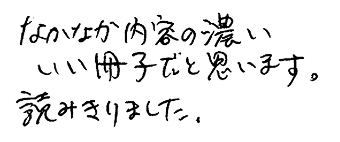 なかなか内容の濃い
いい冊子だと思います。
読みきりました.